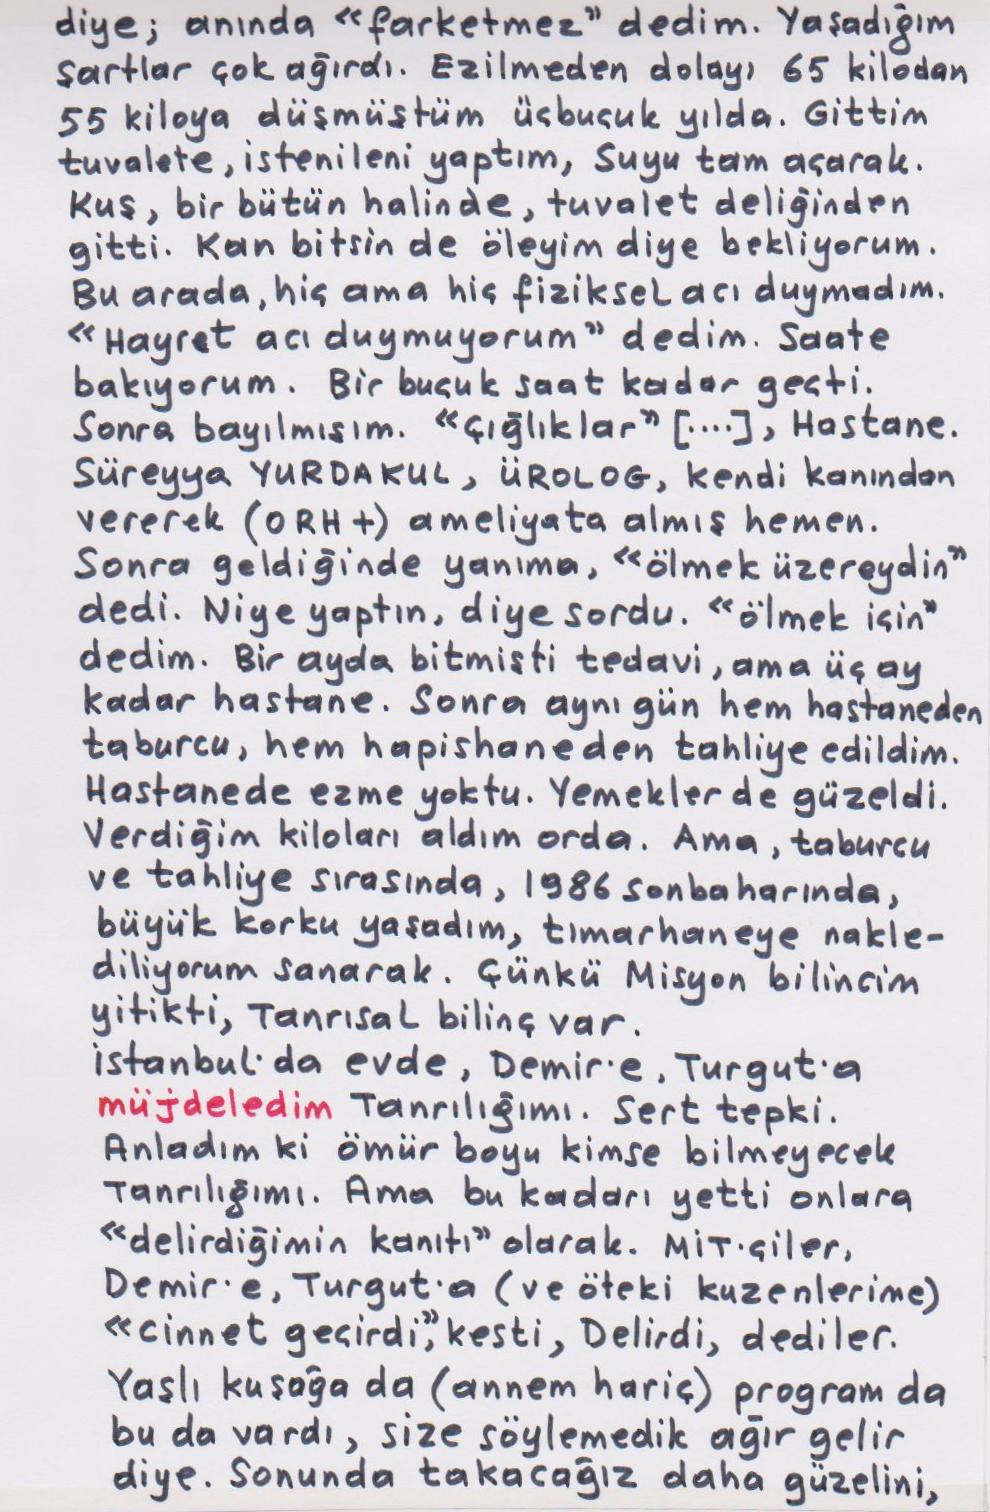 diye; anında «farketmez” dedim. Yaşadığım
şartlar çok ağırdı. Ezilmeden dolayı 65 kilodan
55 kiloya düşmüştüm üçbuçuk yılda. Gittim
tuvalete, istenileni yaptım, Suyu tam açarak.
Kuş, bir bütün halinde, tuvalet deliğinden
gitti. Kan bitsin de öleyim diye bekliyorum.
Bu arada, hiç ama hiç fiziksel acı duymadım.
«Hayret acı duymuyorum” dedim. Saate
bakıyorum. Bir buçuk saat kadar geçti.
Sonra bayılmışım. «Çığlıklar” [....], Hastane.
Süreyya YURDAKUL, ÜROLOG, kendi kanından
vererek (ORH+) ameliyata almış hemen.
Sonra geldiğinde yanıma, «ölmek üzereydin”
dedi. Niye yaptın, diye sordu. «ölmek için”
dedim. Bir ayda bitmişti tedavi, ama üç ay
kadar hastane. Sonra aynı gün hem hastaneden
taburcu, hem hapishaneden tahliye edildim.
Hastanede ezme yoktu. Yemekler de güzeldi.
Verdiğim kiloları aldım orda. Ama, taburcu
ve tahliye sırasında, 1986 sonbaharında,
büyük korku yaşadım, tımarhaneye nakle-
diliyorum sanarak. Çünkü Misyon bilincim
yitikti, Tanrısal bilinç var.
istanbul'da evde, Demir'e, Turgut'a
müjdeledim Tanrılığımı. Sert tepki.
Anladım ki ömür boyu kimse bilmeyecek
Tanrılığımı. Ama bu kadarı yetti onlara
«delirdiğimin kanıtı” olarak. MİT'çiler,
Demir'e, Turgut'a (ve öteki kuzenlerime)
«cinnet geçirdi”, kesti, Delirdi, dediler.
Yaşlı kuşağa da (annem hariç) program da
bu da vardı, size söylemedik ağır gelir
diye. Sonunda takacağız daha güzelini,